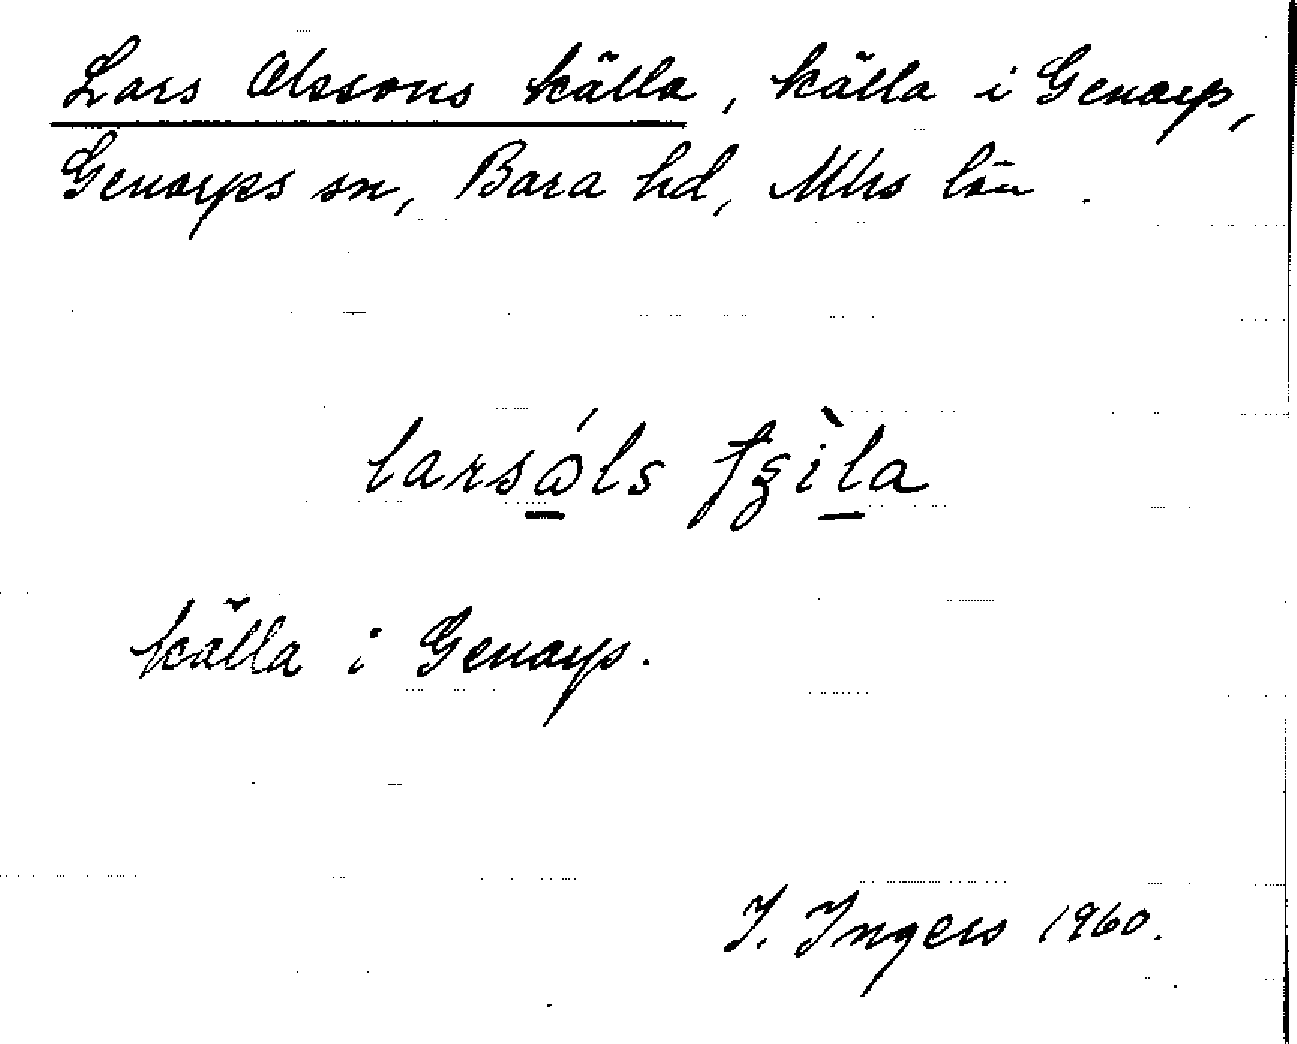 Lars Olssons källa, källa i Genarp,
Genarps sn, Bara hd, Mhs län.
källa i Genarp.
I. Ingers 1960.